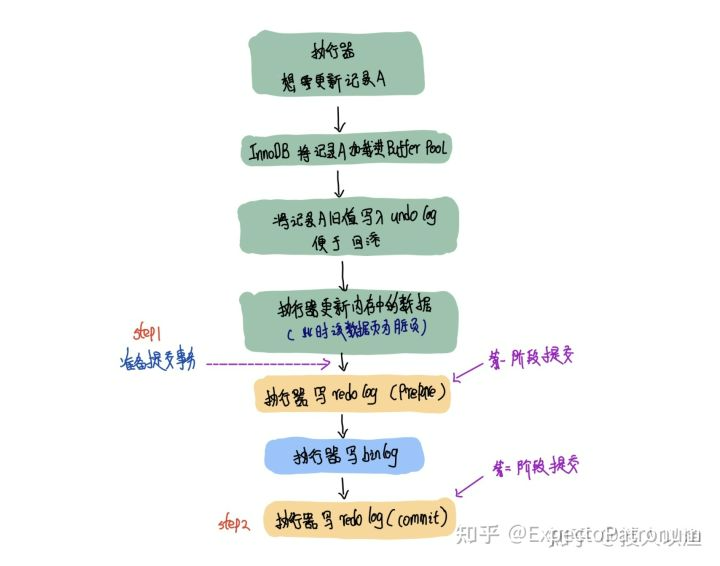 执行器
想要更新记录A
InnoDB 将记录A加载进Buffer Pool
将记录A旧值写入 undo log
便于回滚
执行器更新内存中的数据
(此时该数据页为脏页)
step1
准备提交事务
第一阶段提交
执行器写redo log (Prepare)
执行器写binlog
第二阶段提交
step2
执行器写redo log(commit)
知乎 @ExpectoPatronum